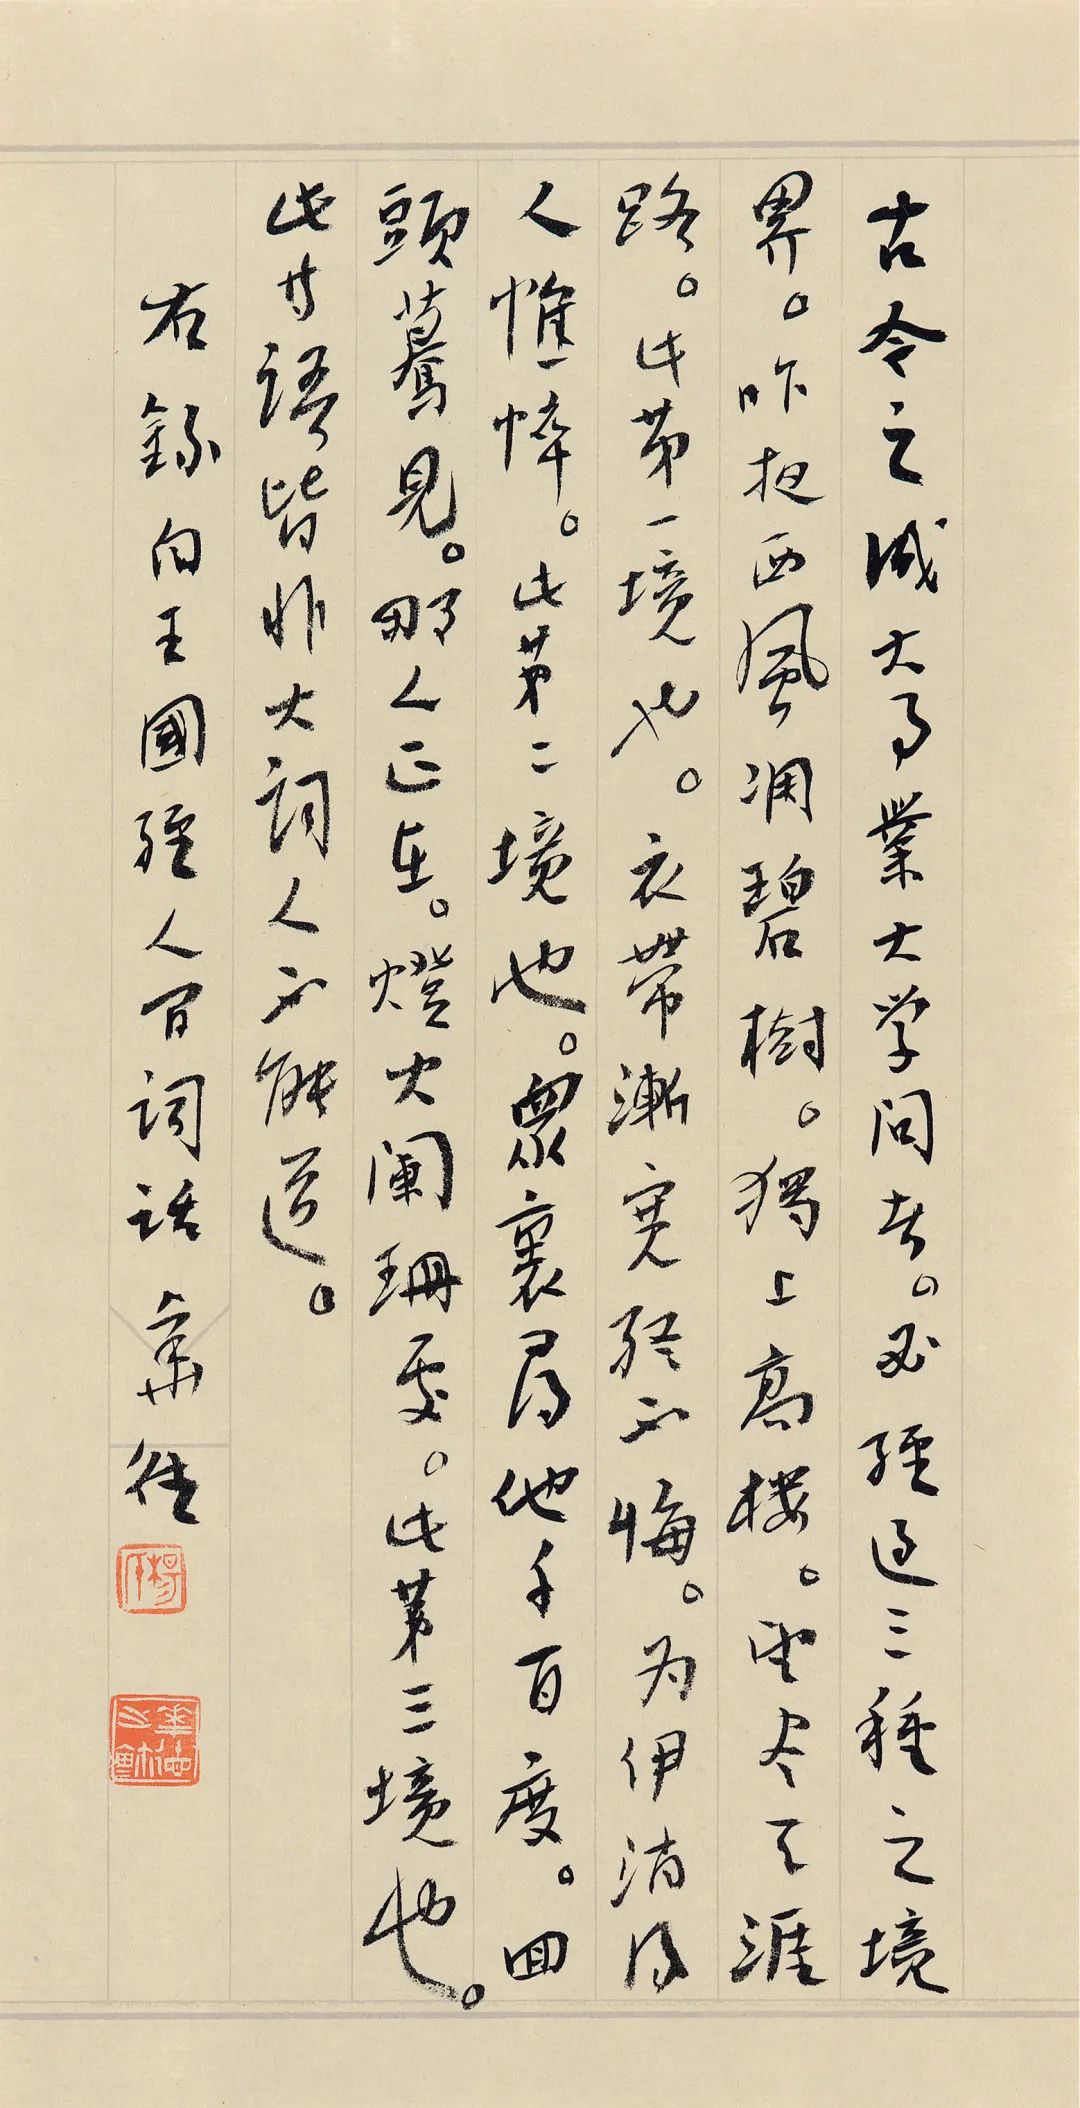 古今之成大事業大学問者。必經過三種之境
界。昨夜西風凋碧樹。獨上高樓。望尽天涯
路。此第一境也。衣帶漸寬終不悔。为伊消得
人憔悴。此第二境也。眾裏尋他千百度。回
頭驀見。那人正在。燈火阑珊處。此第三境也。
此等語皆非大詞人不能道。
右錄自王國維人间詞話